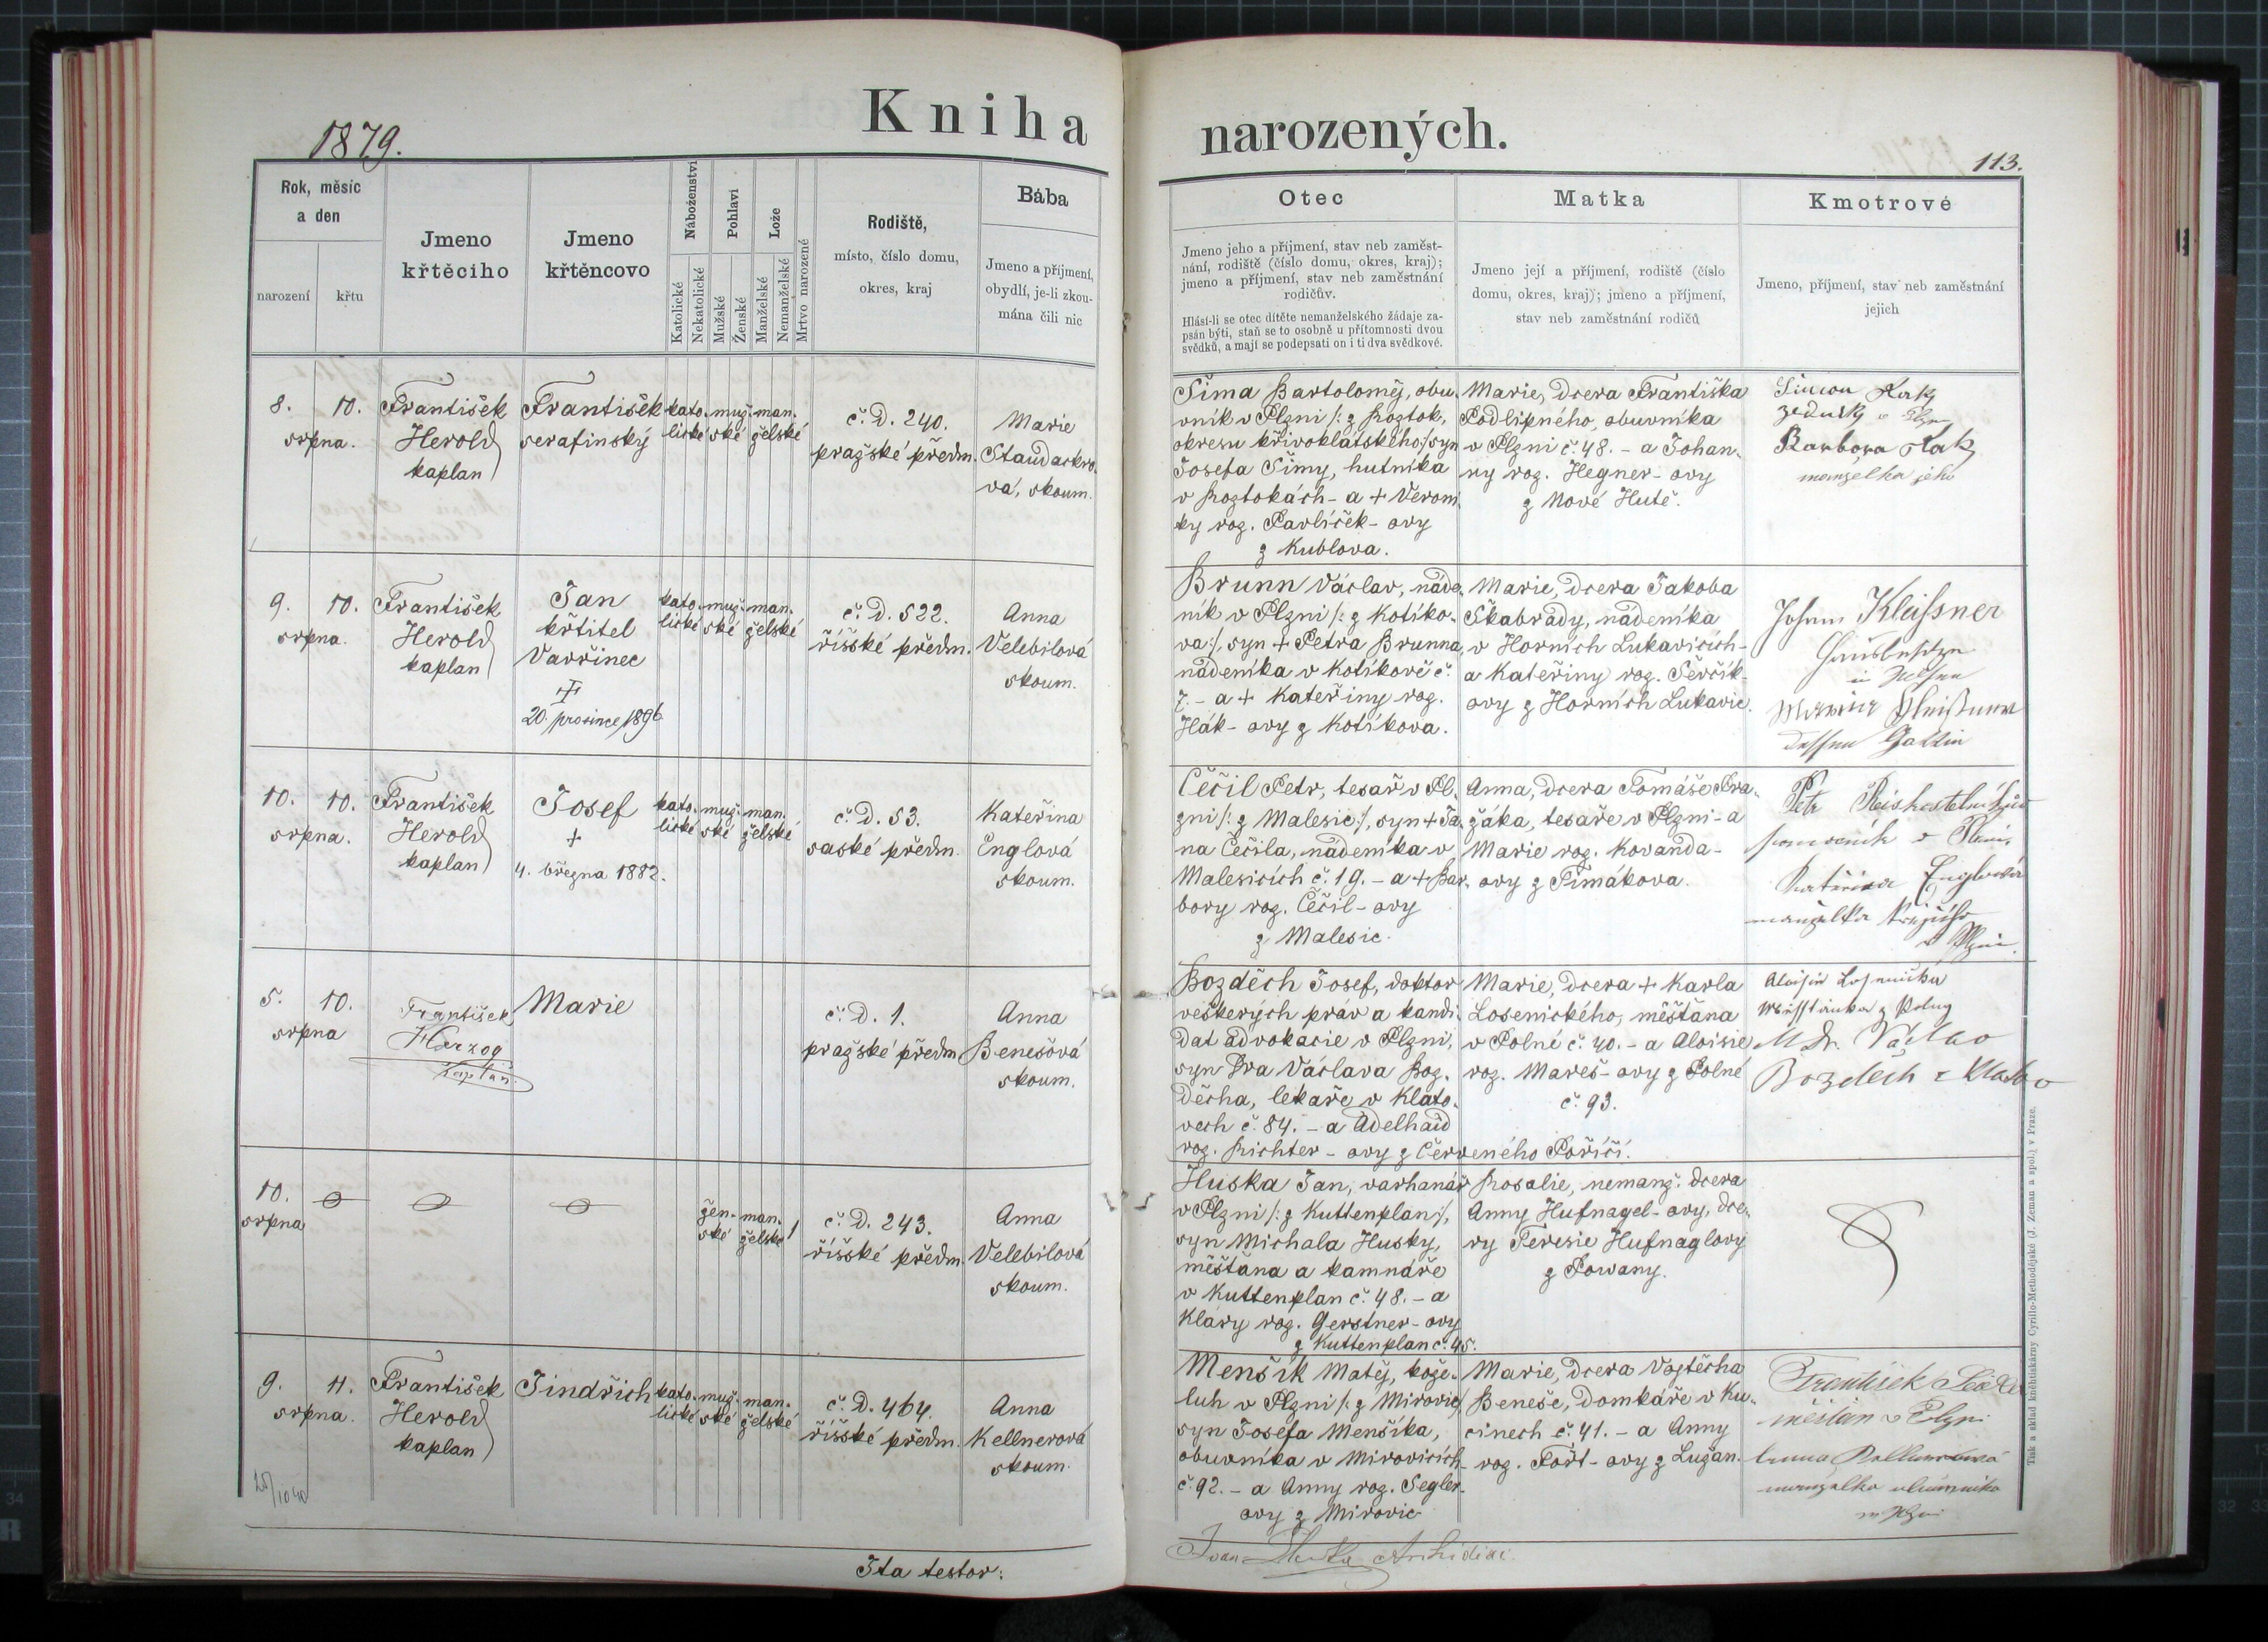 1879.
Kniha narozených.
113.
Rok, měsíc
a den
narození
křtu
Jmeno
křtěcího
Jmeno
křtěncovo
Náboženství
Katolické
Nekatolické
Pohlaví
Mužské
Ženské
Lože
Manželské
Nemanželské
Mrtvo narozené
Rodiště,
místo, číslo domu,
okres, kraj
Bába
Jmeno a příjmení,
obydlí, je-li zkou-
mána čili nic
Otec
Jmeno jeho a příjmení, stav neb zaměst-
nání, rodiště (číslo domu, okres, kraj);
jmeno a příjmení, stav neb zaměstnání
rodičův.
Hlásí-li se otec dítěte nemanželského žádaje za-
psán býti, staň se to osobně u přítomnosti dvou
svědků, a mají se podepsati on i ti dva svědkové.
Matka
Jmeno její a příjmení, rodiště (číslo
domu, okres, kraj); jmeno a příjmení,
stav neb zaměstnání rodičů
Kmotrové
Jmeno, příjmení, stav neb zaměstnání
jejich
8. 10.
srpna.
František
Herold
kaplan
František
serafinský
kato-
lické
muž-
ské
man-
želské
č. D. 240.
pražské předm.
Marie
Staudackro-
vá, skoum.
Šíma Bartoloměj, obu-
vník v Plzni /: z Roztok,
okresu křivoklátského :/ syn
Josefa Šímy, hutníka
v Roztokách - a + Veroni-
ky roz. Pavlíček - ovy
z Kublova.
Marie, dcera Františka
Podlipného, obuvníka
v Plzni č. 48. - a Johan-
ny roz. Hegner - ovy
z Nové Hutě.
Simon Rak
zednik v Plzni
Barbora Rak
manželka jeho
9. 10.
srpna.
František
Herold
kaplan
Jan
křtitel
Vavřinec
20. prosince 1896
kato-
lické
muž-
ské
man-
želské
č. D. 522.
říšské předm.
Anna
Velebilová
skoum.
Brunn Václav, náde-
ník v Plzni /: z Kotíko-
va :/, syn + Petra Brunna,
nádeníka v Kotíkově č.
7. - a + Kateřiny roz.
Hák - ovy z Kotíkova.
Marie, dcera Jakoba
Škabrády, nádeníka
v Horních Lukavicích -
a Kateřiny roz. Ševčík -
ovy z Horních Lukavic.
Johann Kleissner
Hausbesitzer
in Pilsen
dessen Gattin
10. 10.
srpna.
František
Herold
kaplan
Josef
+
4. března 1882.
kato-
lické
muž-
ské
man-
želské
č. D. 53.
saské předm.
Kateřina
Englová
skoum.
Čečil Petr, tesař v Pl-
zni /: z Malesic :/, syn + Ja-
na Čečila, nádeníka v
Malesicích č. 19. - a + Bar-
bory roz. Čečil - ovy
z Malesic.
Anna, dcera Tomáše Pra-
žáka, tesaře v Plzni - a
Marie roz. Kovanda -
ovy z Tímákova.
Petr
Kateřina Englová
manželka
v Plzni.
5. 10.
srpna
František
Herzog
kaplan.
Marie
č. D. 1.
pražské předm.
Anna
Benešová
skoum.
Bozděch Josef, doktor
veškerých práv a kandi-
dat advokacie v Plzni,
syn Dra Václava Boz-
děcha, lékaře v Klato-
vech č. 84. - a Adelhaid
roz. Richter - ovy z Červeného Poříčí.
Marie, dcera + Karla
Losenického, měšťana
v Polné č. 40. - a Aloisie
roz. Mareš - ovy z Polné
č. 93.
Aloisie Losenická
MDr. Václav
Bozděch z Klatov
10.
srpna
žen-
ské
man-
želské
1
č. D. 243.
říšské předm.
Anna
Velebilová
skoum.
Huska Jan, varhanář
v Plzni /: z Kuttenplan :/,
syn Michala Husky,
měšťana a kamnáře
v Kuttenplan č. 48. - a
Kláry roz. Gerstner - ovy
z Kuttenplan č. 45.
Rosalie, nemanž. dcera
Anny Hufnagel - ovy, dce-
ry Teresie Hufnaglovy
z Powany.
9. 11.
srpna.
František
Herold
kaplan
Jindřich
kato-
lické
muž-
ské
man-
želské
č. D. 464.
říšské předm.
Anna
Kellnerová
skoum.
Menšík Matěj, kože-
luh v Plzni /: z Mirovic /
syn Josefa Menšíka,
obuvníka v Mirovicích
č. 92. - a Anny roz. Segler -
ovy z Mirovic
Marie, dcera Vojtěcha
Beneše, domkáře v Ku-
cinech č. 41. - a Anny
roz. Fořt - ovy z Lužan.
František
měšťan v Plzni
Anna Kellnerová
manželka
v Plzni
Ita testor:
Archidiac.
Tisk a sklad knihtiskárny Cyrillo-Methodějské (J. Zeman a spol.) v Praze.